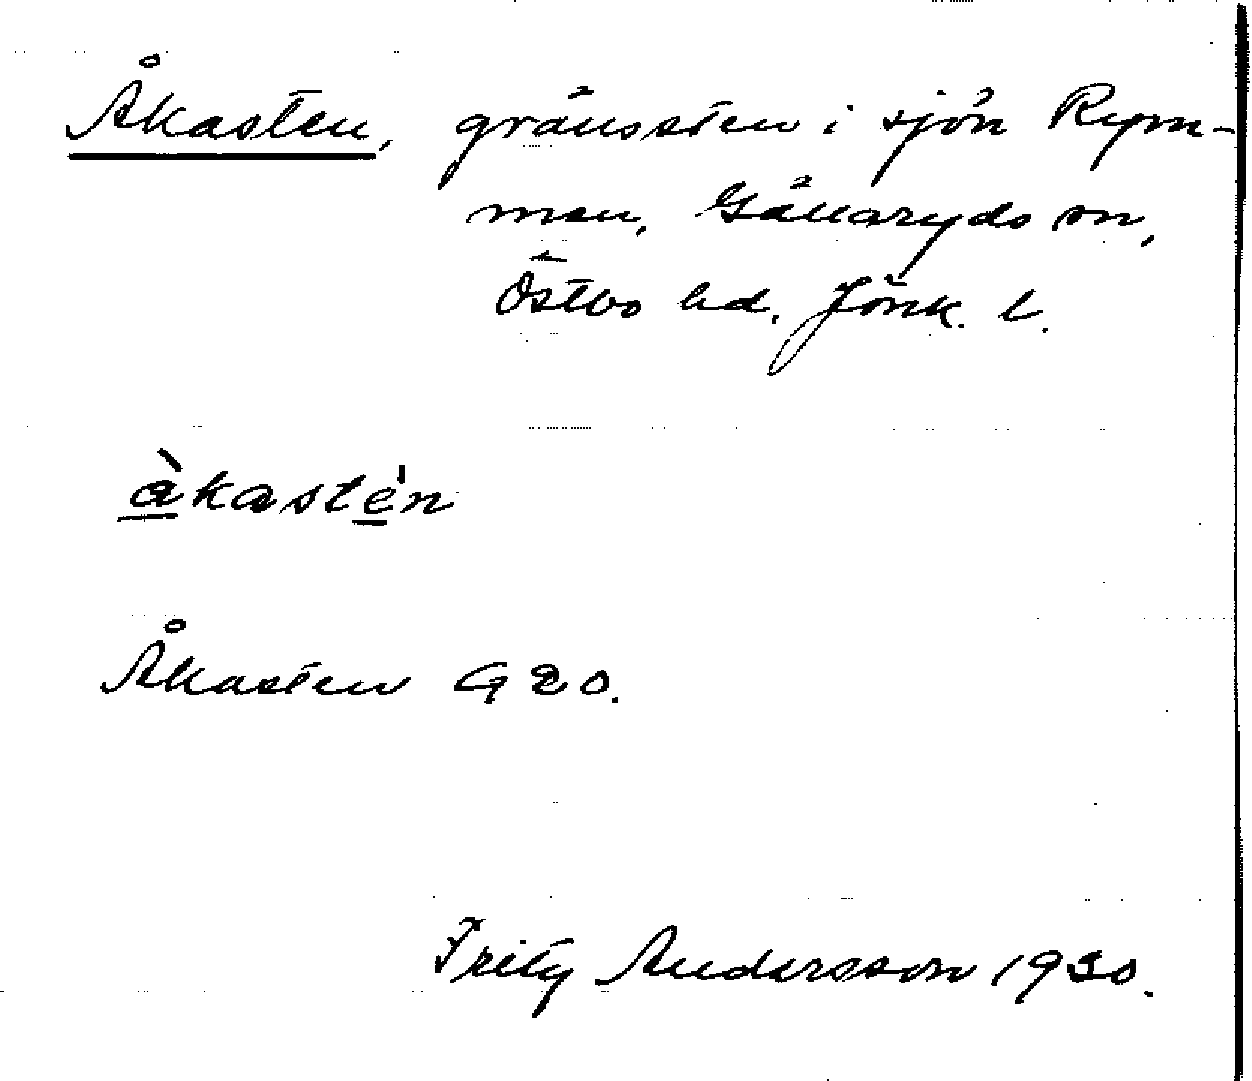 Åkasten, gränssten i sjön Rym-
men, Gällaryds sn,
Östbo hd. Jönk. l.
àkastén
Åkasten G 20.
Fritz Andersson 1930.